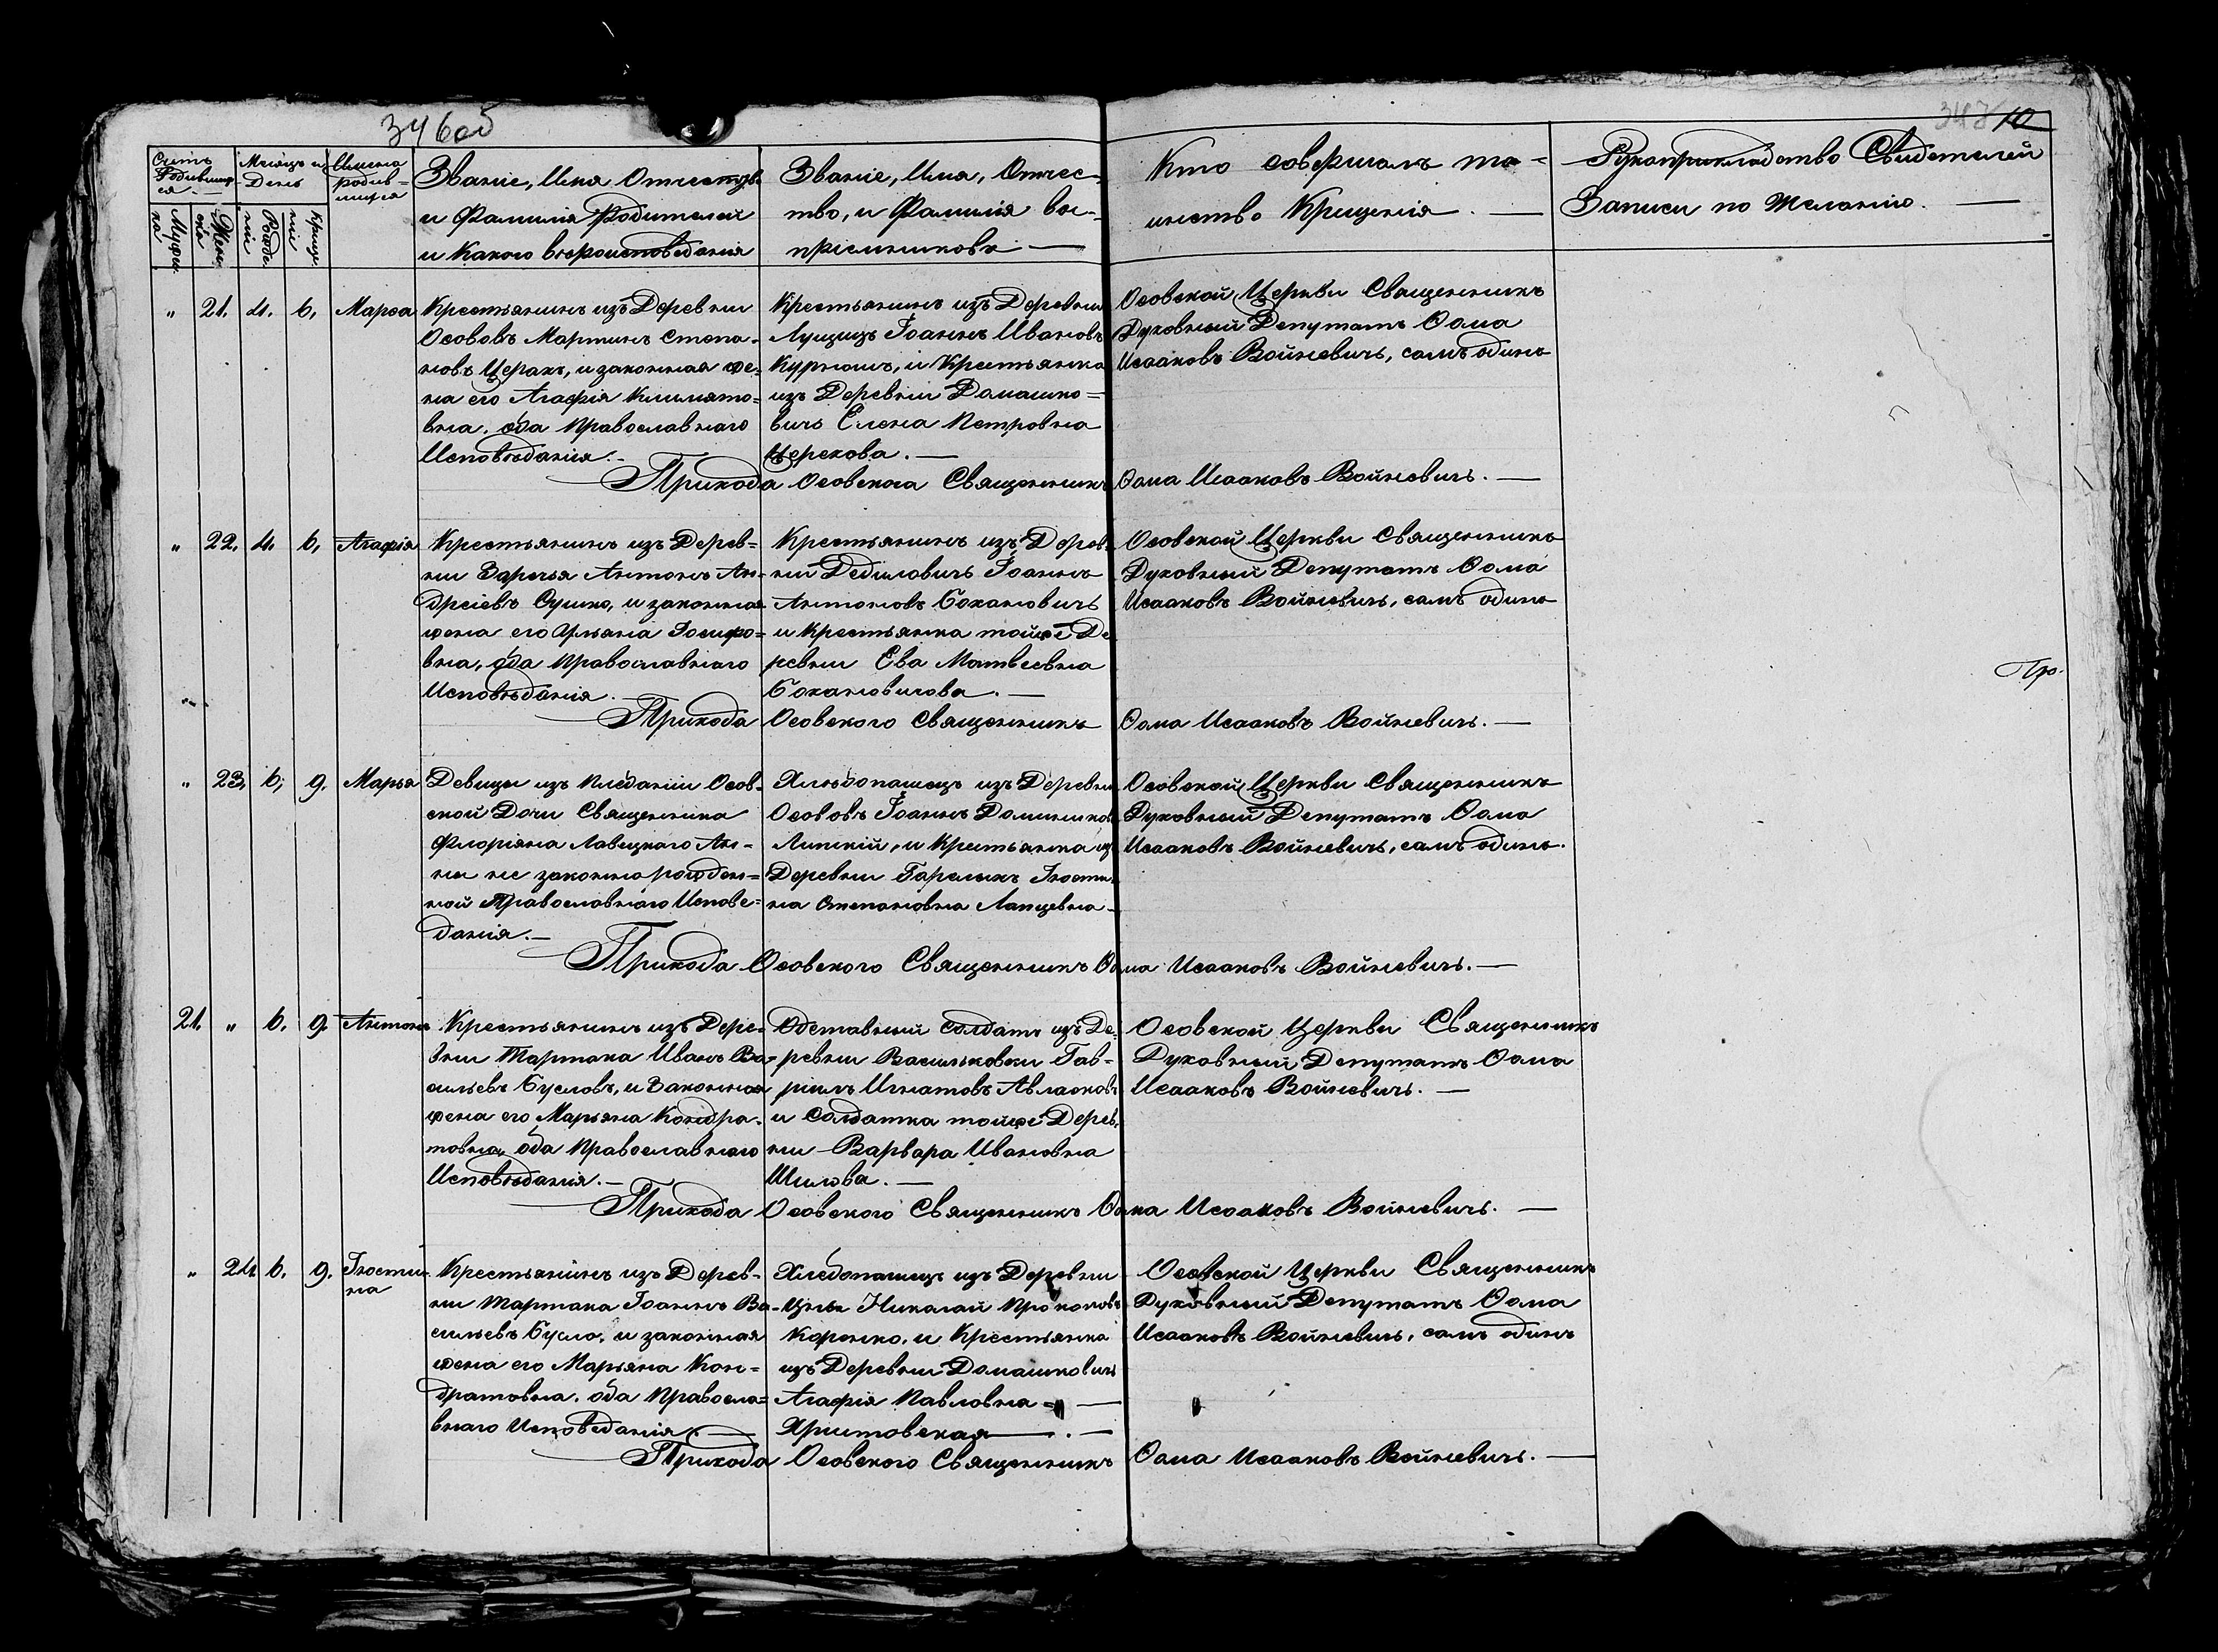 346об
10
Счетъ Родившихся.
Месяцъ и День
Имена родившихся
Званіе, Имя Отчество
и Фамилія Родителей
и Какого вероисповѣданія
Званіе, Имя, Отчес-
тво, и Фамилія вос-
пріемниковъ
Кто совершалъ та-
инство Крещенія.
Рукоприкладство Свидетелей
Записи по Желанію.
„ 21. 4. 6. Марѳа
Крестьянинъ изъ Деревни
Особовъ Мартинъ Степа-
новъ Церах, и законная же-
на его Агафія Климято-
вна, оба Православнаго
Исповѣданія.
Крестьянинъ изъ Деревни
Іоаннъ Ивановъ
и Крестьянка
изъ Деревни Домашко-
вичъ Елена Петровна
Церехова.
Осовской Церкви Священникъ
Духовный Депутатъ Ѳома
Исааковъ Войневичъ, самъ одинъ
Прихода Осовскаго Священникъ Ѳома Исааковъ Войневичъ.
„ 22. 4. 6. Агафія
Крестьянинъ изъ Дерев-
ни Заречья Антонъ Ан-
дреіевъ Сушко, и законная
жена его Ульяна Іосифо-
вна, оба Православнаго
Исповѣданія.
Крестьянинъ изъ Дерев-
ни Дедиловичъ Іоаннъ
Антоновъ Боханович
и Крестьянка тойже Де
ревни Ева Матвеевна
Бохановичова.
Осовской Церкви Священникъ
Духовный Депутатъ Ѳома
Исааковъ Войневичъ, самъ одинъ
Пр.
Прихода Осовского Священникъ Ѳома Исааковъ Войневичъ.
„ 23. 6. 9. Марья
Девицы изъ Осов-
ской Дочи Священника
Флоріяна Лавецкаго Ан-
ны не законно рожден-
ной Православнаго Испове-
данія.
Хлѣбопашецъ изъ Деревни
Особовъ Іоаннъ Доминиковъ
Липскій, и Крестьянка изъ
Деревни Гарелыхъ Іюсти
на Степановна Лапцевна
Осовской Церкви Священникъ
Духовный Депутатъ Ѳома
Исааковъ Войневичъ, самъ одинъ.
Прихода Осовского Священникъ Ѳома Исааковъ Войневичъ.
21. „ 6. 9. Антонъ
Крестьянинъ изъ Дере-
вни Тартака Иванъ Ва-
сильевъ Бусловъ, и Законная
жена его Марьяна Кондра-
товна, оба Православнаго
Исповѣданія.
Одставный Солдатъ изъ Де-
ревни Васильковки Гав-
риилъ Игнатовъ Авласковъ
и Солдатка тойже Дерев-
ни Варвара Ивановна
Шилова.
Осовской Церкви Священникъ
Духовный Депутатъ Ѳома
Исааковъ Войневичъ.
Прихода Осовского Священникъ Ѳома Исааковъ Войневичъ.
„ 24 6. 9. Іюстина
Крестьянинъ изъ Дерев-
ни Тартака Іоаннъ Ва-
сильевъ Бусло, и законная
жена его Марьяна Кон-
дратовна, оба Правосла-
внаго Исповеданія.
Хлебопашецъ изъ Деревни
Цны Николай Прокоповъ
Коренко, и Крестьянка
изъ Деревни Домашковичъ
Агафія Павловна
Христовская.
Осовской Церкви Священникъ
Духовный Депутатъ Ѳома
Исааковъ Войневичъ, самъ одинъ
Прихода Осовского Священникъ Ѳома Исааковъ Войневичъ.